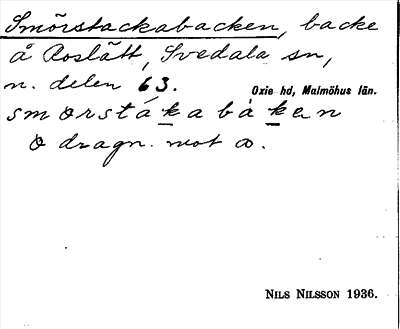 Smörstackabacken, backe
å Roslätt, Svedala sn,
n. delen 63.
Oxie hd, Malmöhus län.
smørstákabàken
ø dragn. mot a.
NILS NILSSON 1936.